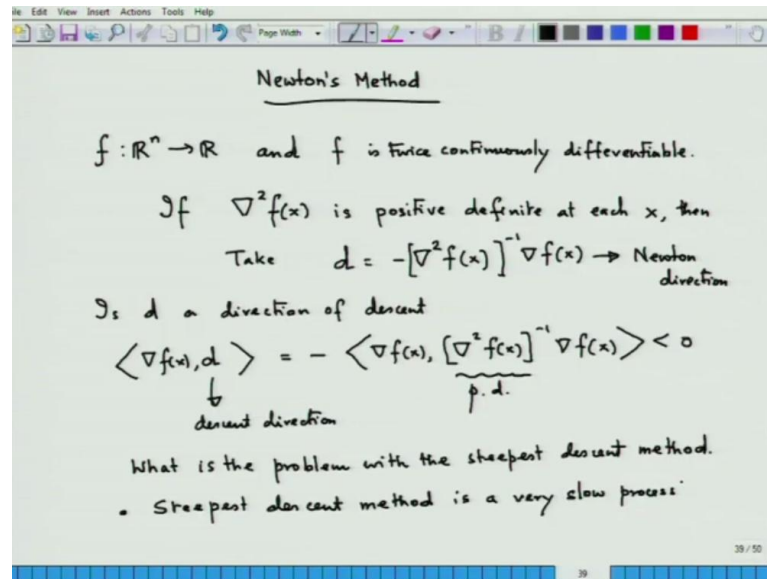 le Edit View Insert Actions Tools Help
Page Width B I
Newton's Method
f : ℝⁿ → ℝ and f is twice continuously differentiable.
If ∇²f(x) is positive definite at each x, then
Take d = -[∇²f(x)]⁻¹ ∇f(x) → Newton
direction
Is d a direction of descent
⟨∇f(x), d⟩ = - ⟨∇f(x), [∇²f(x)]⁻¹ ∇f(x)⟩ < 0
p.d.
descent direction
What is the problem with the steepest descent method.
• Steepest descent method is a very slow process
39 / 50
39